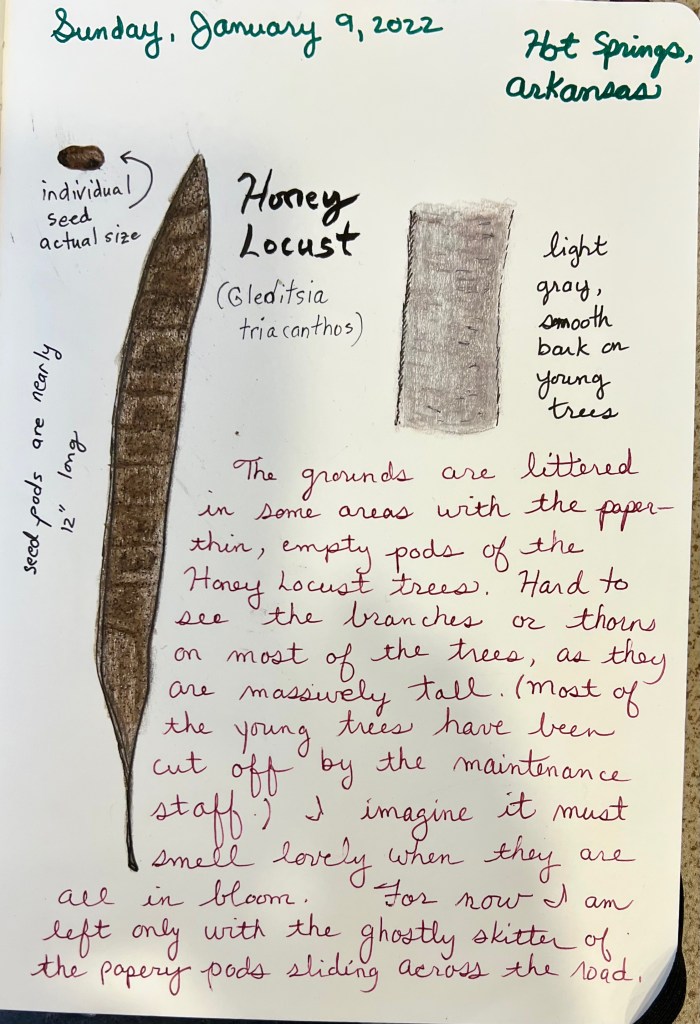 Sunday, January 9, 2022
Hot Springs,
Arkansas
individual
seed
actual size
Honey
Locust
(Gleditsia
triacanthos)
light
gray,
smooth
bark on
young
trees
seed pods are nearly
12" long
The grounds are littered
in some areas with the paper-
thin, empty pods of the
Honey Locust trees. Hard to
see the branches or thorns
on most of the trees, as they
are massively tall. (Most of
the young trees have been
cut off by the maintenance
staff.) I imagine it must
smell lovely when they are
all in bloom. For now I am
left only with the ghostly skitter of
the papery pods sliding across the road.